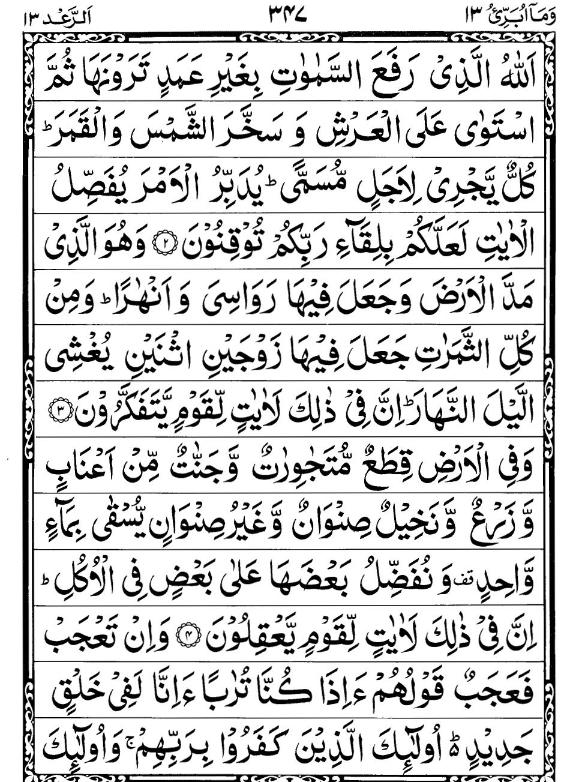 وَمَآ اُبَرِّئُ ١٣ ٣٤٧ اَلرَّعْد ١٣
اَللّٰهُ الَّذِیْ رَفَعَ السَّمٰوٰتِ بِغَیْرِ عَمَدٍ تَرَوْنَهَا ثُمَّ
اسْتَوٰی عَلَی الْعَرْشِ وَ سَخَّرَ الشَّمْسَ وَالْقَمَرَ ؕ
كُلٌّ یَّجْرِیْ لِاَجَلٍ مُّسَمًّی ؕ یُدَبِّرُ الْاَمْرَ یُفَصِّلُ
الْاٰیٰتِ لَعَلَّكُمْ بِلِقَآءِ رَبِّكُمْ تُوْقِنُوْنَ ﴿٢﴾ وَهُوَ الَّذِیْ
مَدَّ الْاَرْضَ وَجَعَلَ فِیْهَا رَوَاسِیَ وَ اَنْهٰرًا ؕ وَمِنْ
كُلِّ الثَّمَرٰتِ جَعَلَ فِیْهَا زَوْجَیْنِ اثْنَیْنِ یُغْشِی
الَّیْلَ النَّهَارَ ؕ اِنَّ فِیْ ذٰلِكَ لَاٰیٰتٍ لِّقَوْمٍ یَّتَفَكَّرُوْنَ ﴿٣﴾
وَفِی الْاَرْضِ قِطَعٌ مُّتَجٰوِرٰتٌ وَّجَنّٰتٌ مِّنْ اَعْنَابٍ
وَّ زَرْعٌ وَّ نَخِیْلٌ صِنْوَانٌ وَّ غَیْرُ صِنْوَانٍ یُّسْقٰی بِمَآءٍ
وَّاحِدٍ قف وَ نُفَضِّلُ بَعْضَهَا عَلٰی بَعْضٍ فِی الْاُكُلِ ؕ
اِنَّ فِیْ ذٰلِكَ لَاٰیٰتٍ لِّقَوْمٍ یَّعْقِلُوْنَ ﴿٤﴾ وَاِنْ تَعْجَبْ
فَعَجَبٌ قَوْلُهُمْ ءَاِذَا كُنَّا تُرٰبًا ءَاِنَّا لَفِیْ خَلْقٍ
جَدِیْدٍ ؕ۬ اُولٰٓئِكَ الَّذِیْنَ كَفَرُوْا بِرَبِّهِمْ ۚ وَاُولٰٓئِكَ